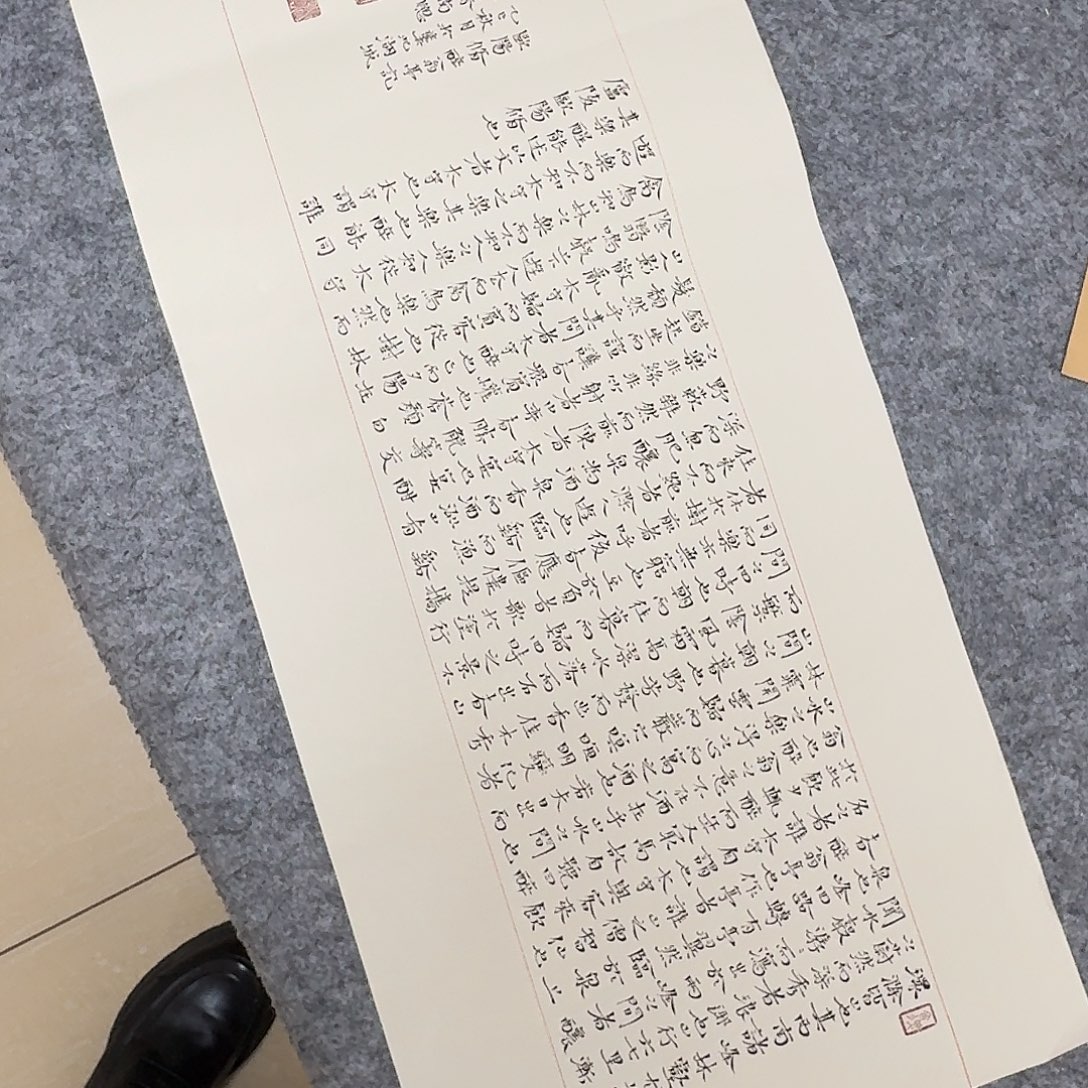 環滁皆山也其西南諸峰林壑
之蔚然而深秀者琅琊也山行六七里漸
聞水聲潺潺而瀉出於兩峰之間者釀
泉也峰回路轉有亭翼然臨於泉上
者醉翁亭也作亭者誰山之僧智仙也
名之者誰太守自謂也太守與客來飲
於此飲少輒醉而年又最高故自號曰醉
翁也醉翁之意不在酒在乎山水之間也
山水之樂得之心而寓之酒也若夫日出而
林霏開雲歸而巖穴暝晦明變化者
山間之朝暮也野芳發而幽香佳木秀
而繁陰風霜高潔水落而石出者山
間之四時也朝而往暮而歸四時之景不
同而樂亦無窮也至於負者歌於塗行
者休於樹前者呼後者應傴僂提攜
往來而不絕者滁人遊也臨谿而漁谿
深而魚肥釀泉為酒泉香而酒洌山肴
野蔌雜然而前陳者太守宴也宴酣
之樂非絲非竹射者中弈者勝觥籌交
錯起坐而諠譁者眾賓懽也蒼顏白
髮頹然乎其間者太守醉也已而夕陽在
山人影散亂太守歸而賓客從也樹林
陰翳鳴聲上下遊人去而禽鳥樂也然而
禽鳥知山林之樂而不知人之樂人知從太守
遊而樂而不知太守之樂其樂也醉能同
其樂醒能述以文者太守也太守謂誰
廬陵歐陽脩也
歐陽脩醉翁亭記